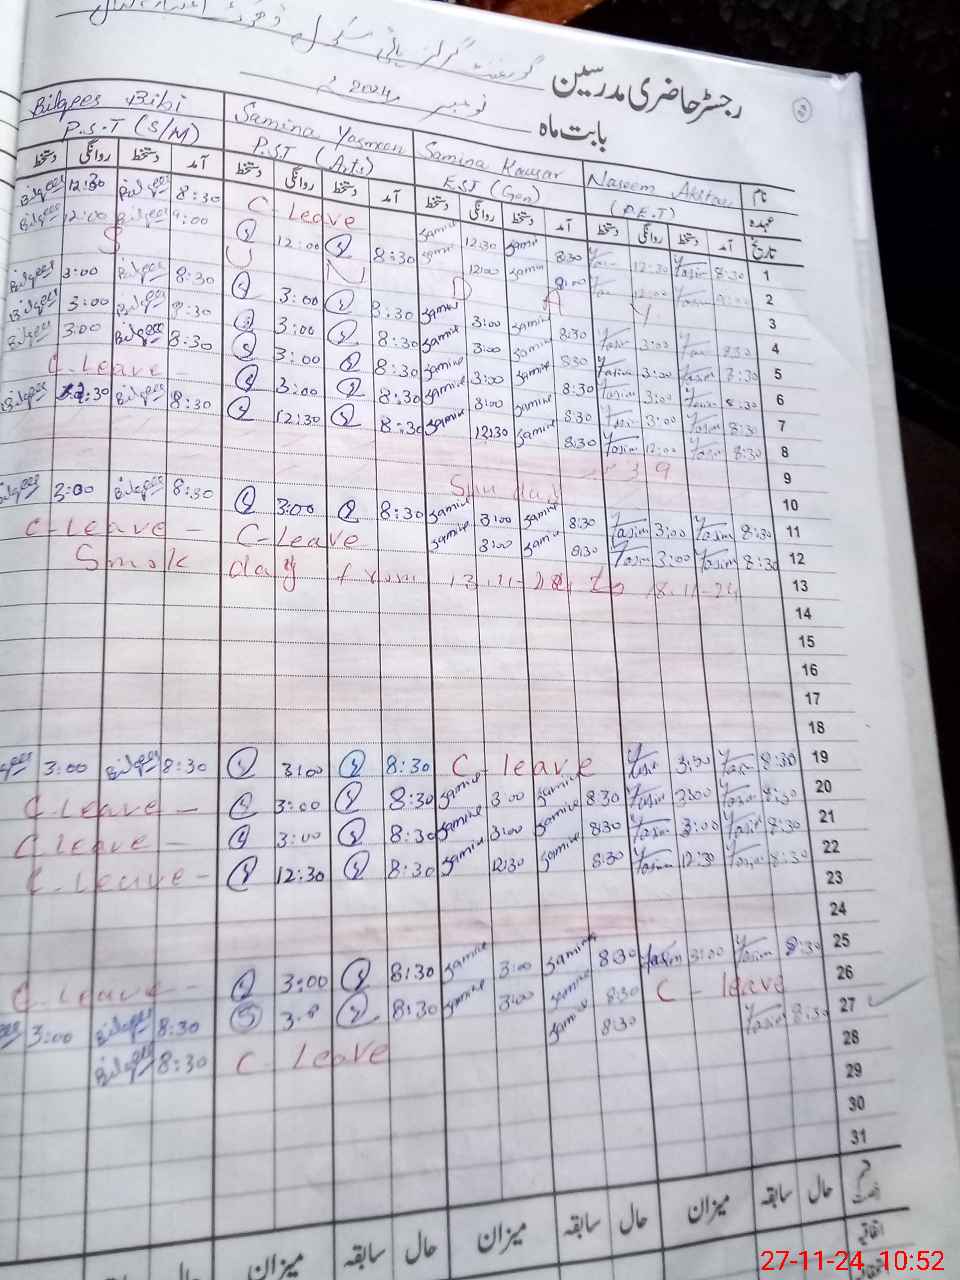 گورنمنٹ گرلز ہائی سکول
رجسٹر حاضری مدرسین
بابت ماہ نومبر 2024ء
Bilqees Bibi Samina Yasmeen Samina Kausar Naseem Akhtar نام
P.S.T (S/M) P.S.T (Arts) E.S.T (Gen) (P.E.T) عہدہ
دستخط روانگی دستخط آمد دستخط روانگی دستخط آمد دستخط روانگی دستخط آمد دستخط روانگی دستخط آمد تاریخ
Bilqees 12:30 Bilqees 8:30 C-Leave Samina 12:30 Samina 8:30 Yasim 12:30 Yasim 8:30 1
Bilqees 12:00 Bilqees 9:00 12:00 8:30 Samina 12:00 Samina 9:00 2
S U N D A Y 3
Bilqees 3:00 Bilqees 8:30 3:00 8:30 Samina 3:00 Samina 8:30 Yasim 3:00 Yasim 8:30 4
Bilqees 3:00 Bilqees 8:30 3:00 8:30 Samina 3:00 Samina 8:30 Yasim 3:00 Yasim 8:30 5
Bilqees 3:00 Bilqees 8:30 3:00 8:30 Samina 3:00 Samina 8:30 Yasim 3:00 Yasim 8:30 6
C-Leave - 3:00 8:30 Samina 3:00 Samina 8:30 Yasim 3:00 Yasim 8:30 7
Bilqees 12:30 Bilqees 8:30 12:30 8:30 Samina 12:30 Samina 8:30 Yasim 12:00 Yasim 8:30 8
9 9
Sunday 10
Bilqees 3:00 Bilqees 8:30 3:00 8:30 Samina 3:00 Samina 8:30 Yasim 3:00 Yasim 8:30 11
C-Leave - C-Leave Samina 3:00 Samina 8:30 Yasim 3:00 Yasim 8:30 12
Smok day from 13-11-24 to 18-11-24 13
14
15
16
17
18
3:00 Bilqees 8:30 3:00 8:30 C-leave Yasim 3:00 Yasim 8:30 19
C-Leave - 3:00 8:30 Samina 3:00 Samina 8:30 Yasim 3:00 Yasim 8:30 20
C-Leave - 3:00 8:30 Samina 3:00 Samina 8:30 Yasim 3:00 Yasim 8:30 21
C-Leave - 12:30 8:30 Samina 12:30 Samina 8:30 Yasim 12:30 Yasim 8:30 22
23
24
C-Leave - 3:00 8:30 Samina 3:00 Samina 8:30 Yasim 3:00 Yasim 8:30 25
3:00 Bilqees 8:30 8:30 Samina 3:00 Samina 8:30 C-leave 26
Bilqees 8:30 C-Leave Samina 8:30 Yasim 8:30 27
28
29
30
31
میزان سابقہ حال میزان سابقہ حال میزان سابقہ حال
27-11-24 10:52